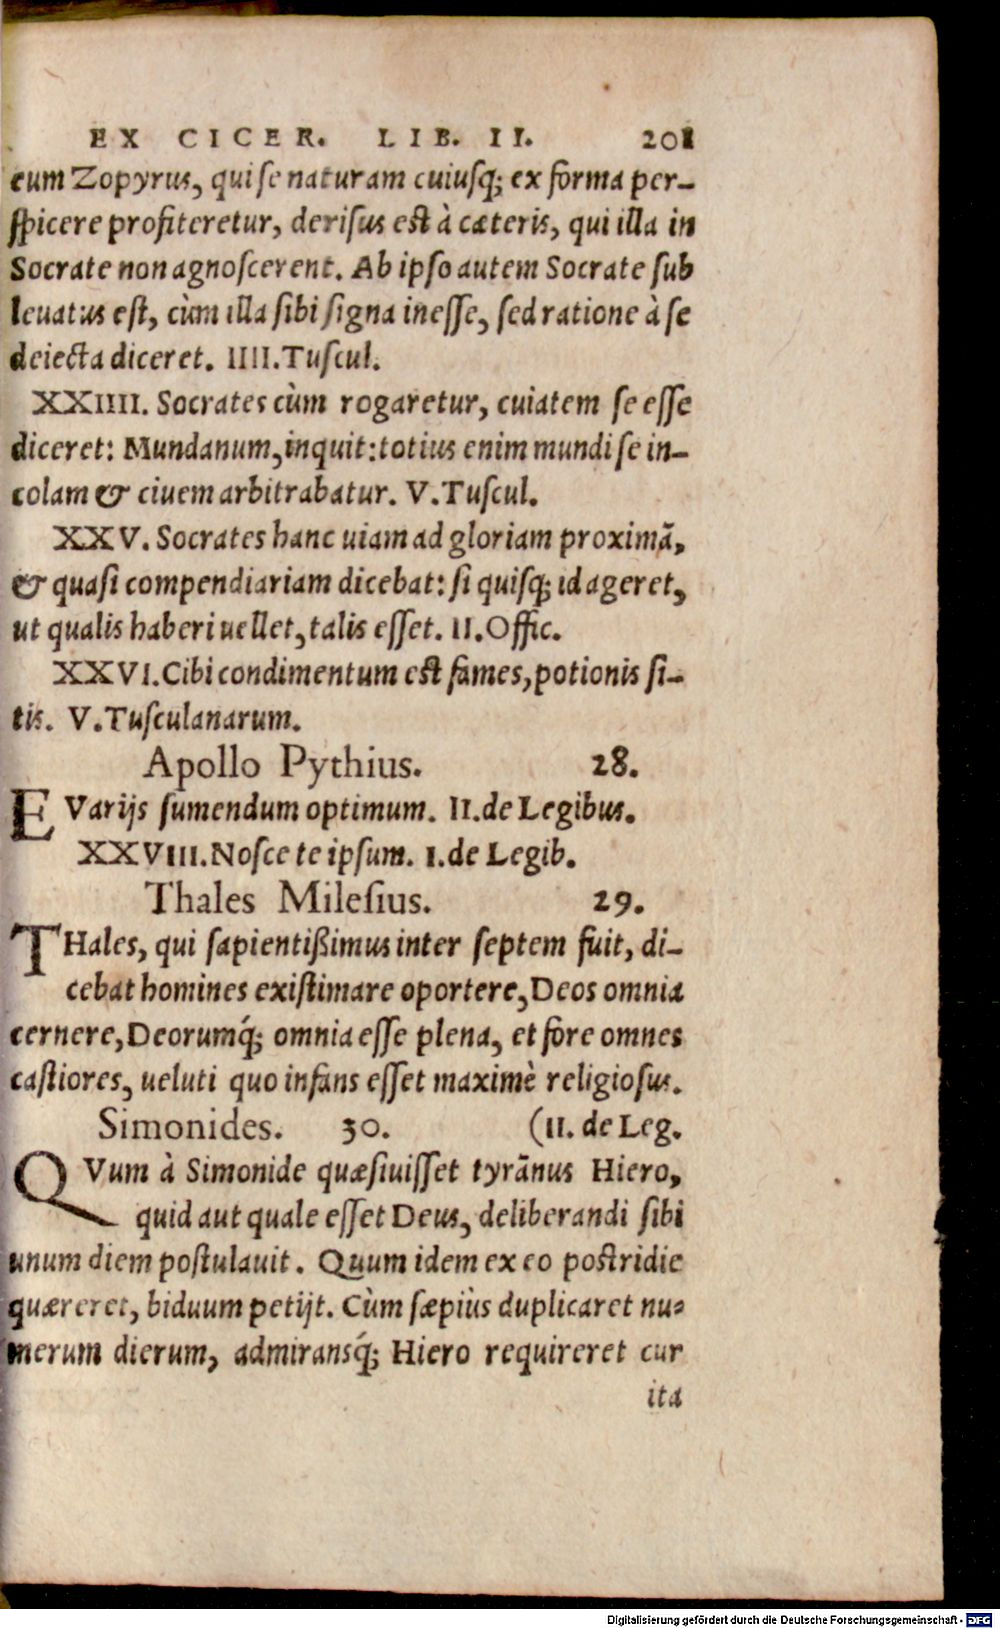 EX CICER. LIB. II. 201
eum Zopyrus, qui se naturam cuiusq; ex forma per-
spicere profiteretur, derisus est à cæteris, qui illa in
Socrate non agnoscerent. Ab ipso autem Socrate sub
leuatus est, cùm illa sibi signa inesse, sed ratione à se
deiecta diceret. IIII.Tuscul.
XXIIII. Socrates cùm rogaretur, cuiatem se esse
diceret: Mundanum, inquit: totius enim mundi se in-
colam & ciuem arbitrabatur. V.Tuscul.
XXV. Socrates hanc uiam ad gloriam proximā,
& quasi compendiariam dicebat: si quisq; id ageret,
ut qualis haberi uellet, talis esset. II.Offic.
XXVI. Cibi condimentum est fames, potionis si-
tis. V.Tusculanarum.
Apollo Pythius. 28.
E Varijs sumendum optimum. II.de Legibus.
XXVIII. Nosce te ipsum. I.de Legib.
Thales Milesius. 29.
THales, qui sapientißimus inter septem fuit, di-
cebat homines existimare oportere, Deos omnia
cernere, Deorumq́; omnia esse plena, et fore omnes
castiores, ueluti quo in fans esset maximè religiosus.
Simonides. 30. (II. de Leg.
QVum à Simonide quæsiuisset tyrānus Hiero,
quid aut quale esset Deus, deliberandi sibi
unum diem postulauit. Quum idem ex eo postridie
quæreret, biduum petijt. Cùm sæpiùs duplicaret nu-
merum dierum, admiransq́; Hiero requireret cur
ita
Digitalisierung gefördert durch die Deutsche Forschungsgemeinschaft - DFG